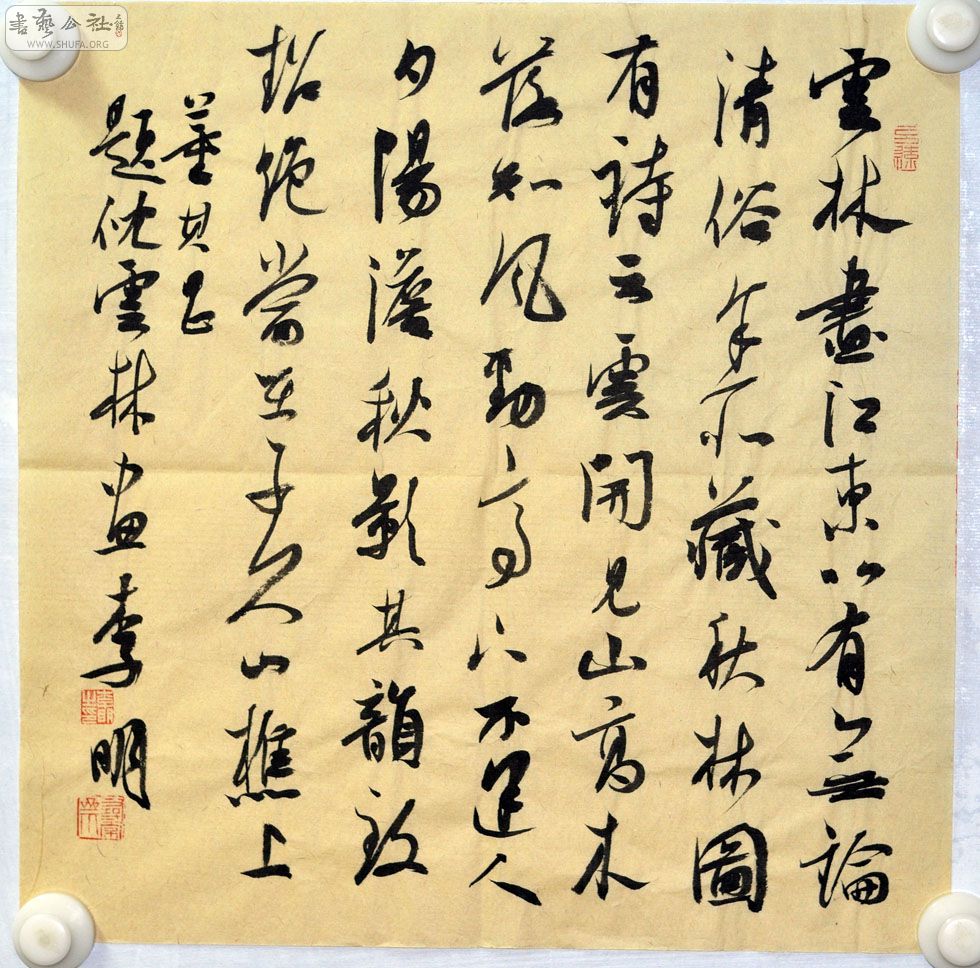 雲林畫江東以有無論
清俗余所藏秋林圖
有詩云雲開見山高木
落知風勁亭下不逢人
夕陽澹秋影其韻致
超絕當在子久山樵上
董其昌
題倪雲林画李明
書藝公社
WWW.SHUFA.ORG